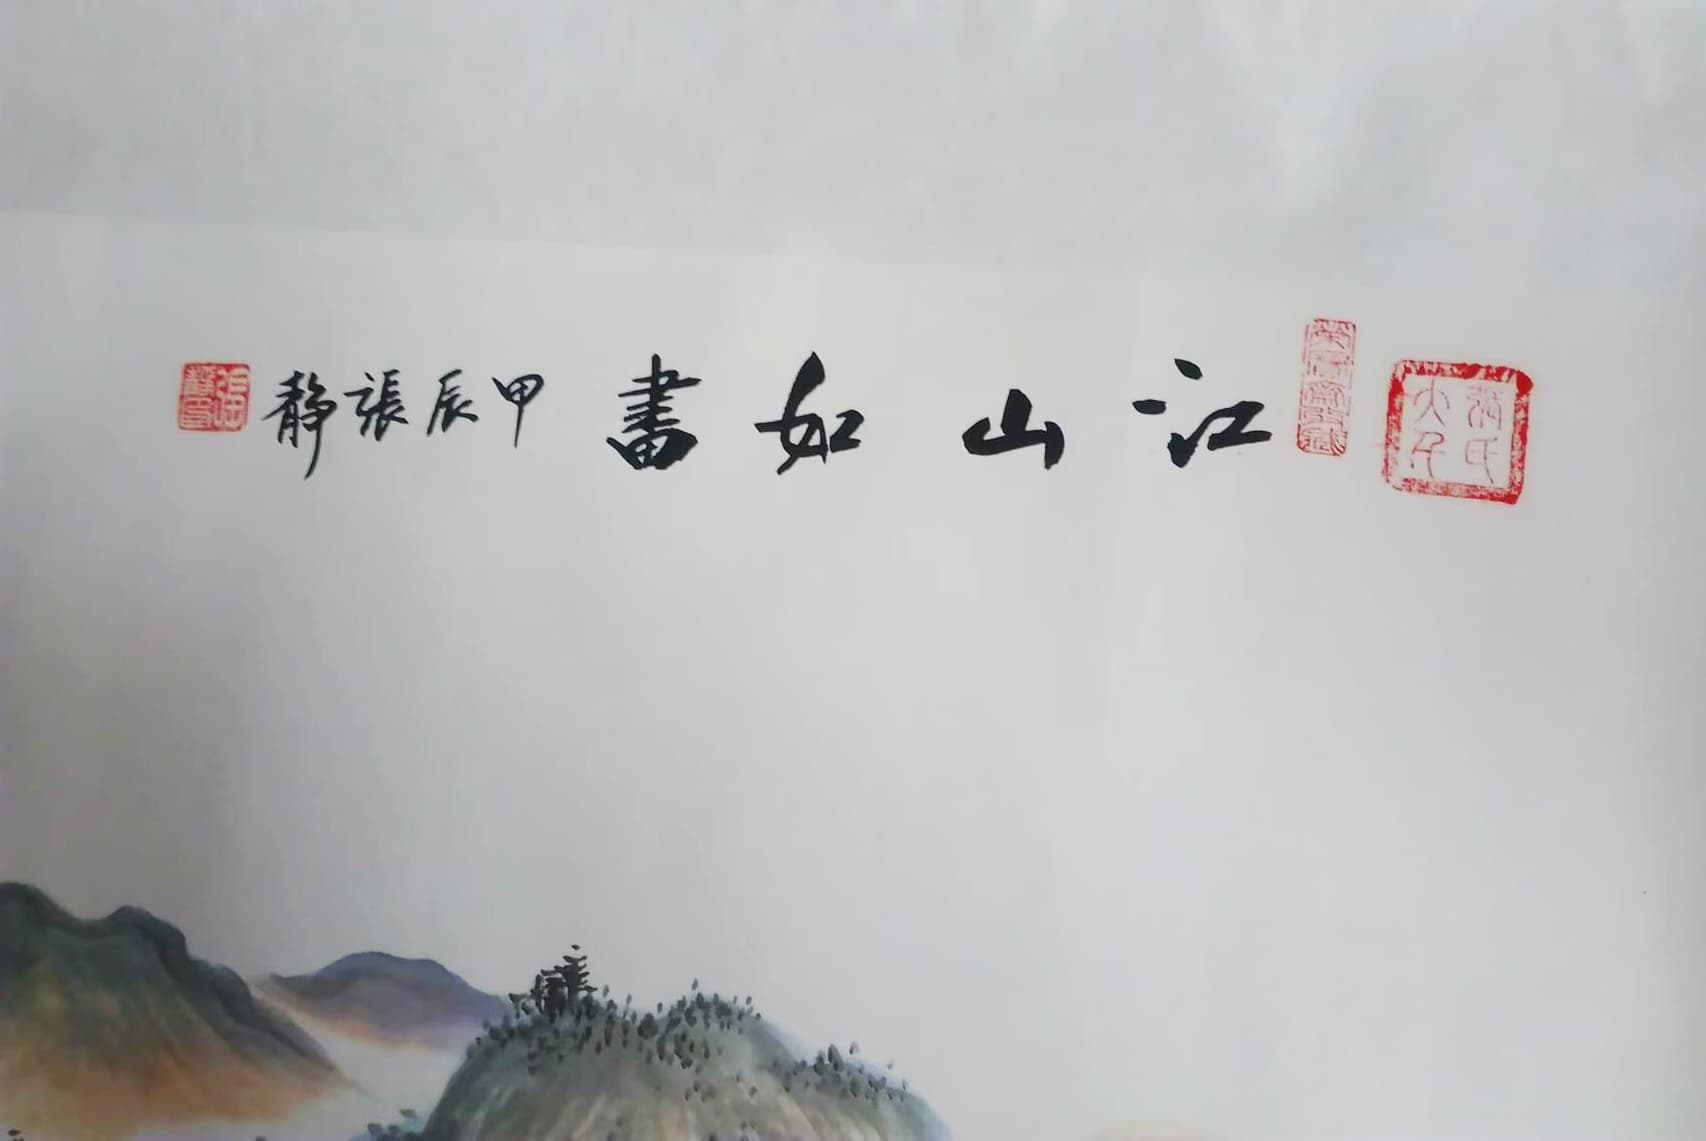 江山如畫 甲辰張静